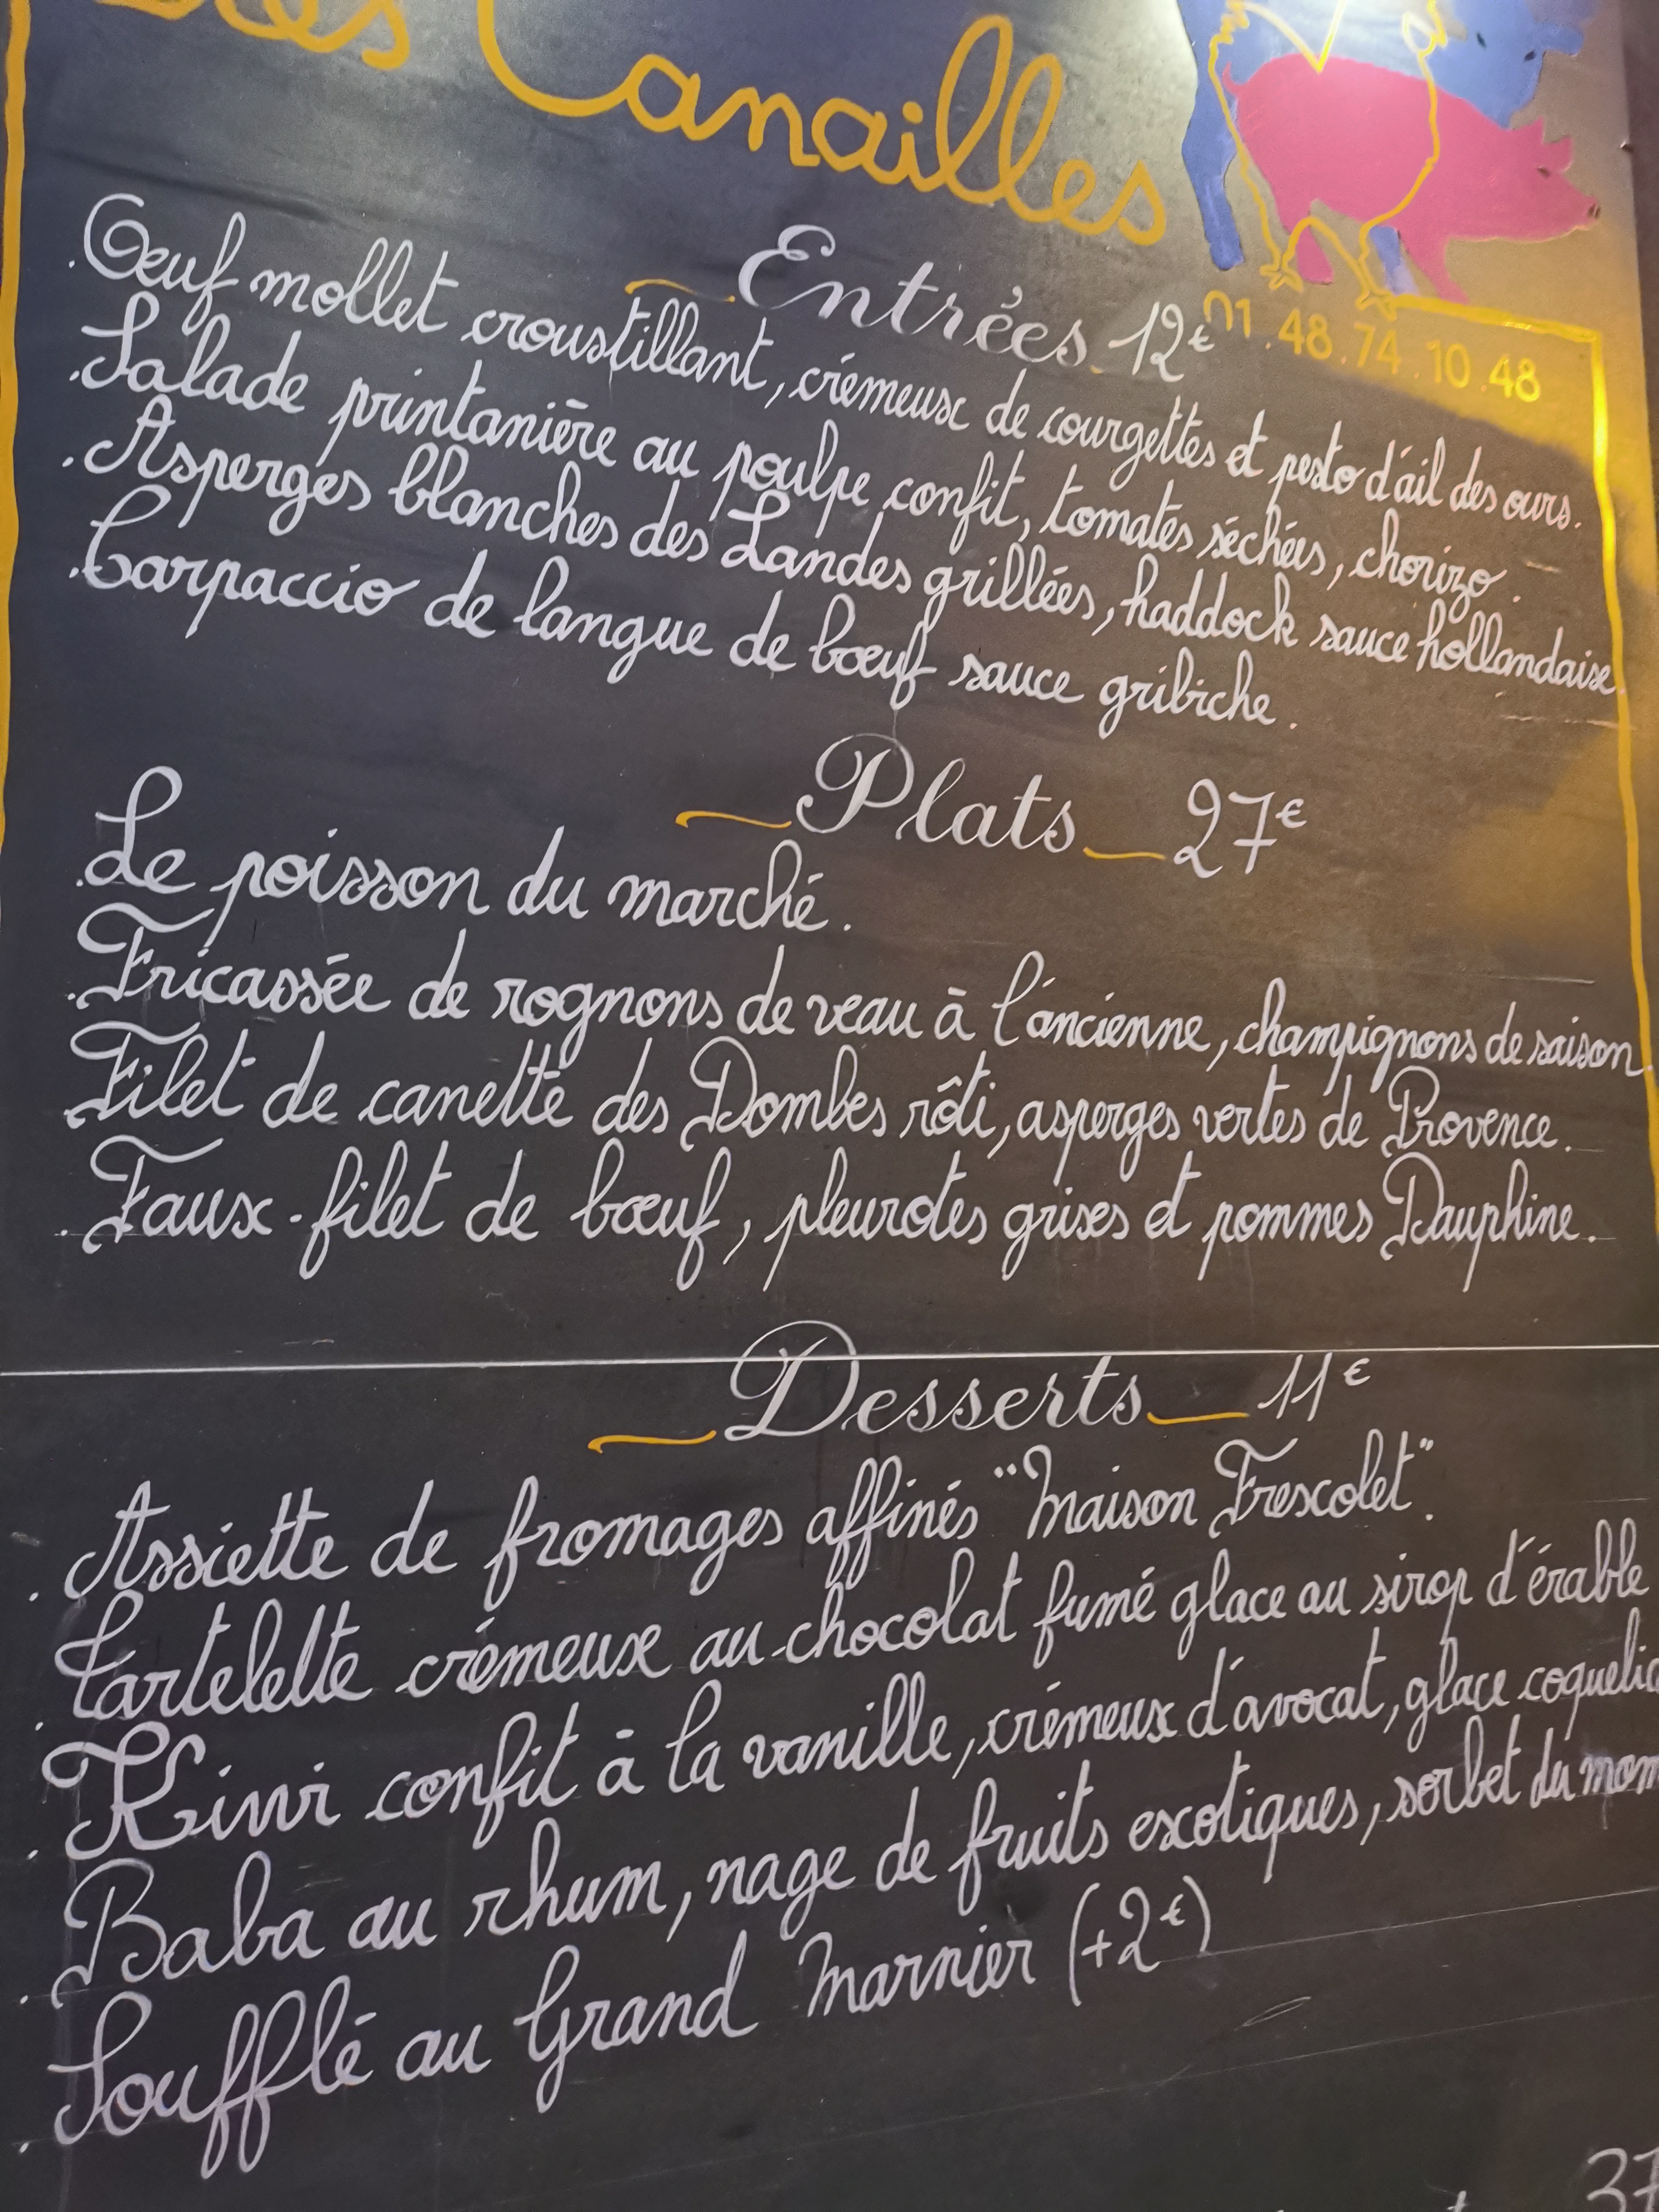 Les Canailles
01.48.74.10.48
Entrées 12€
.Oeuf mollet croustillant, crémeux de courgettes et pesto d'ail des ours.
.Salade printanière au poulpe confit, tomates séchées, chorizo.
.Asperges blanches des Landes grillées, haddock sauce hollandaise.
.Carpaccio de langue de bœuf sauce gribiche.
Plats 27€
.Le poisson du marché.
.Fricassée de rognons de veau à l'ancienne, champignons de saison.
.Filet de canette des Dombes rôti, asperges vertes de Provence.
.Faux-filet de bœuf, pleurotes grises et pommes Dauphine.
Desserts 11€
.Assiette de fromages affinés "Maison Frescolet".
.Tartelette crémeux au chocolat fumé glace au sirop d'érable
.Kiwi confit à la vanille, crémeux d'avocat, glace coquelic
.Baba au rhum, nage de fruits exotiques, sorbet du mom
.Soufflé au Grand Marnier (+2€)
37